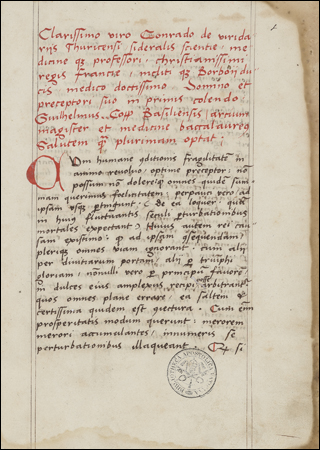 Clarissimo viro Conrado de virida
rijs Thuricensi sideralis scientie, me
dicine qz professori, christianissimi
regis Francie, nec Borbon du
cis medico doctissimo Domno et
preceptori suo in primis colendo
Guilhelmus Cop Basiliensis, artium
magister et medicine baccalaureus
Salutem q plurimam optat:
humane fragilitatem in
animo revolvo, optime preceptor, no
possum no dolere, q omnes quide
mam querimus foelicitatem, perpauci vero ad
ipsam usqz: ptingunt. De ea loquor, qua
in huius fluctuantis seculi pturbationibus
mortales expectant. Huius autem rei cau
sam existimo, q ad ipsam
pleriqz omnes viam ignorant. cum alij
per divitiarum portam, alij p
gloriam, nonnulli vero p principu favore
in dulces eius amplexus recipi arbitrantur
quos omnes plane errare, ea saltem
certissima quidem est Cum em
prosperitatis modum querunt, merorem
merori accumulantes, innumeris se
perturbationibus illaqueant. si